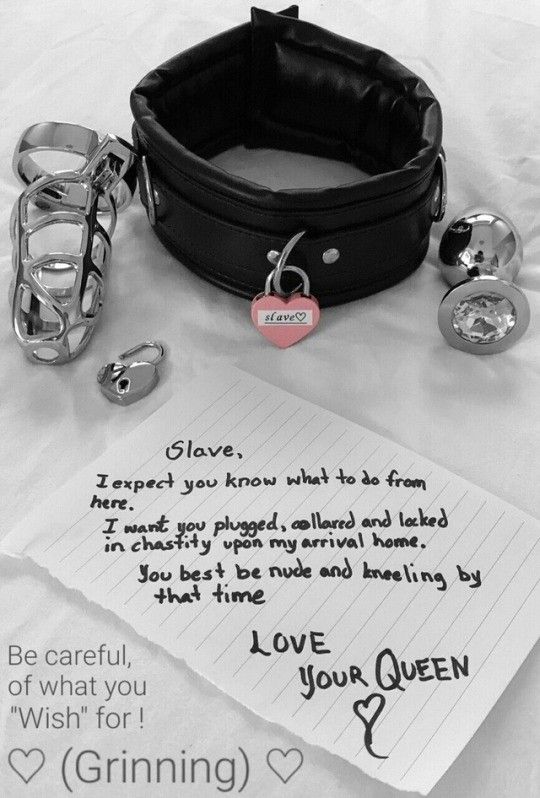 slave♡
Slave,
I expect you know what to do from
here.
I want you plugged, collared and locked
in chastity upon my arrival home.
You best be nude and kneeling by
that time
LOVE
YOUR QUEEN
♡
Be careful,
of what you
"Wish" for !
♡ (Grinning) ♡